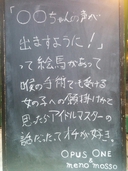 「〇〇ちゃんの声が
出ますように！」
って絵馬があって
喉の手術でもする
女の子への願掛けかと
思ったらアイドルマスターの
話だったってオチが好き。
OPUS ONE
&
meno mosso